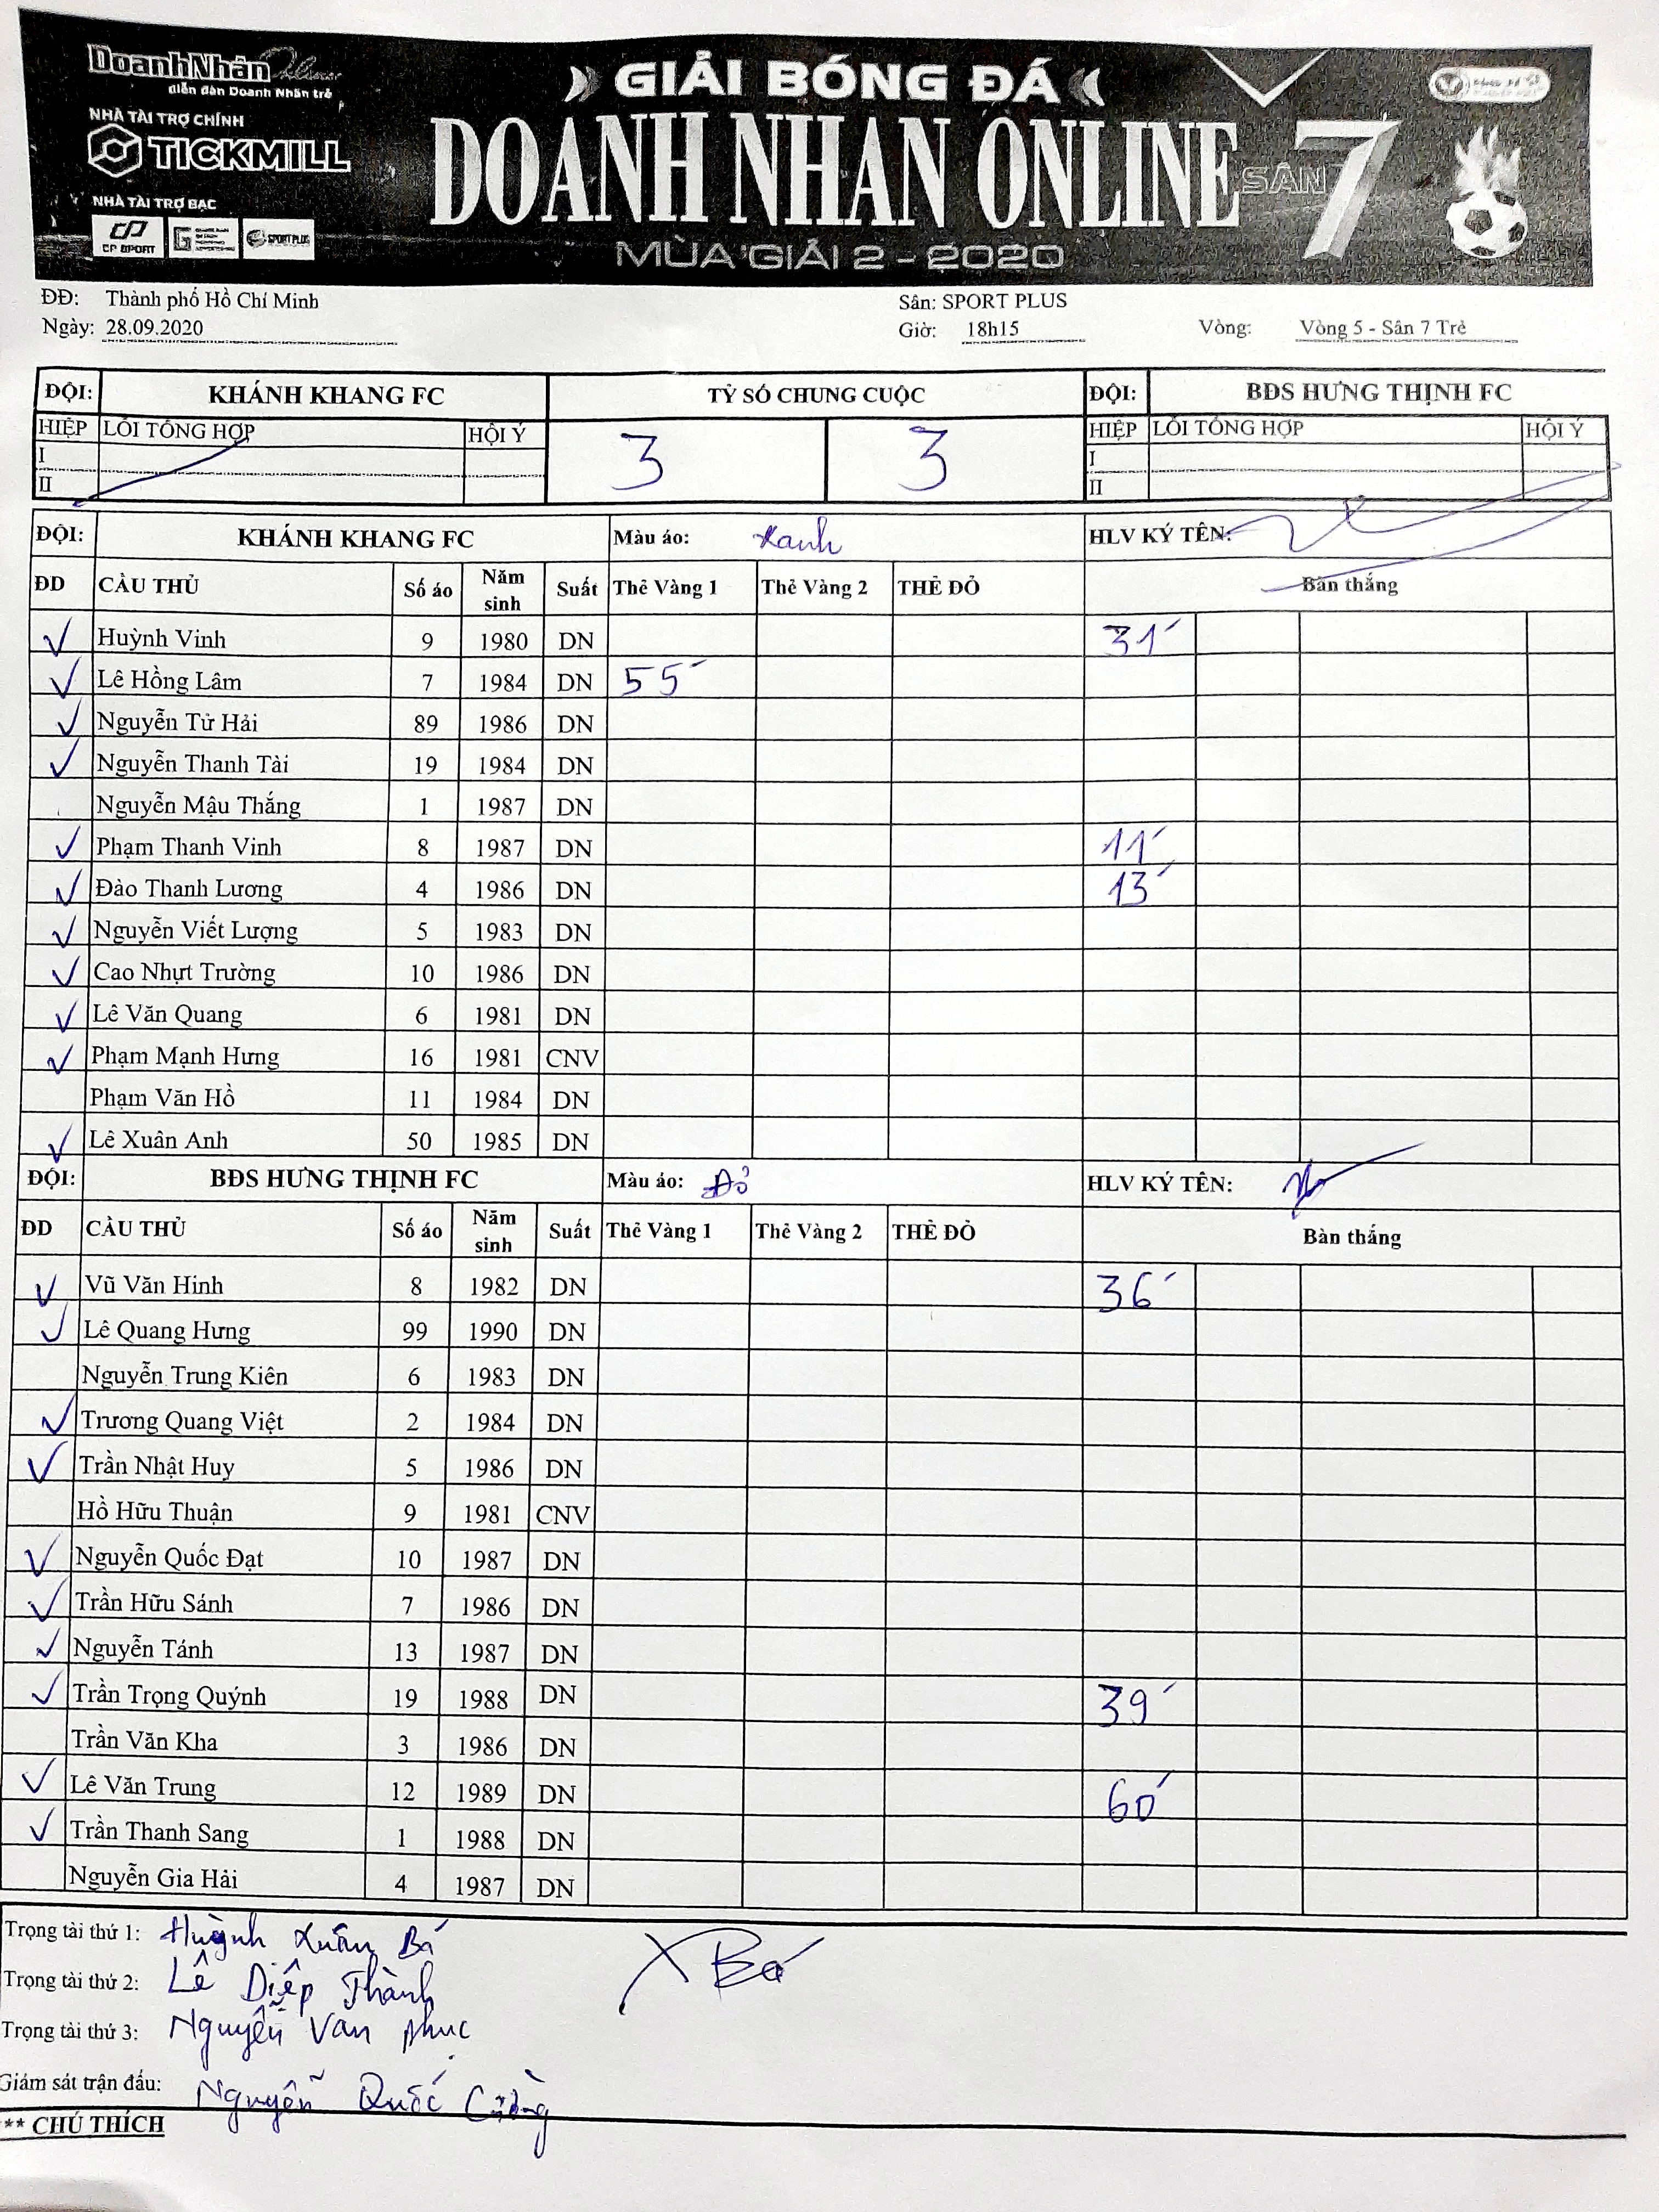 DoanhNhân Online
diễn đàn Doanh Nhân trẻ
NHÀ TÀI TRỢ CHÍNH
TICKMILL
NHÀ TÀI TRỢ BẠC
CP SPORT SPORT PLUS
GIẢI BÓNG ĐÁ
DOANH NHAN ONLINE SÂN 7
MÙA GIẢI 2 - 2020
ĐĐ: Thành phố Hồ Chí Minh Sân: SPORT PLUS
Ngày: 28.09.2020 Giờ: 18h15 Vòng: Vòng 5 - Sân 7 Trẻ
ĐỘI: KHÁNH KHANG FC TỶ SỐ CHUNG CUỘC ĐỘI: BĐS HƯNG THỊNH FC
HIỆP LỖI TỔNG HỢP HỘI Ý 3 3 HIỆP LỖI TỔNG HỢP HỘI Ý
I I
II II
ĐỘI: KHÁNH KHANG FC Màu áo: Xanh HLV KÝ TÊN:
ĐD CẦU THỦ Số áo Năm sinh Suất Thẻ Vàng 1 Thẻ Vàng 2 THẺ ĐỎ Bàn thắng
✓ Huỳnh Vinh 9 1980 DN 31'
✓ Lê Hồng Lâm 7 1984 DN 55'
✓ Nguyễn Tử Hải 89 1986 DN
✓ Nguyễn Thanh Tài 19 1984 DN
Nguyễn Mậu Thắng 1 1987 DN
✓ Phạm Thanh Vinh 8 1987 DN 11'
✓ Đào Thanh Lương 4 1986 DN 13'
✓ Nguyễn Viết Lượng 5 1983 DN
✓ Cao Nhựt Trường 10 1986 DN
✓ Lê Văn Quang 6 1981 DN
✓ Phạm Mạnh Hưng 16 1981 CNV
Phạm Văn Hồ 11 1984 DN
✓ Lê Xuân Anh 50 1985 DN
ĐỘI: BĐS HƯNG THỊNH FC Màu áo: Đỏ HLV KÝ TÊN:
ĐD CẦU THỦ Số áo Năm sinh Suất Thẻ Vàng 1 Thẻ Vàng 2 THẺ ĐỎ Bàn thắng
✓ Vũ Văn Hinh 8 1982 DN 36'
✓ Lê Quang Hưng 99 1990 DN
Nguyễn Trung Kiên 6 1983 DN
✓ Trương Quang Việt 2 1984 DN
✓ Trần Nhật Huy 5 1986 DN
Hồ Hữu Thuận 9 1981 CNV
✓ Nguyễn Quốc Đạt 10 1987 DN
✓ Trần Hữu Sánh 7 1986 DN
✓ Nguyễn Tánh 13 1987 DN
✓ Trần Trọng Quýnh 19 1988 DN 39'
Trần Văn Kha 3 1986 DN
✓ Lê Văn Trung 12 1989 DN 60'
✓ Trần Thanh Sang 1 1988 DN
Nguyễn Gia Hải 4 1987 DN
Trọng tài thứ 1: Huỳnh Xuân Bá XBá
Trọng tài thứ 2: Lê Diệp Thành
Trọng tài thứ 3: Nguyễn Van phuc
Giám sát trận đấu: Nguyễn Quốc Cường
** CHÚ THÍCH